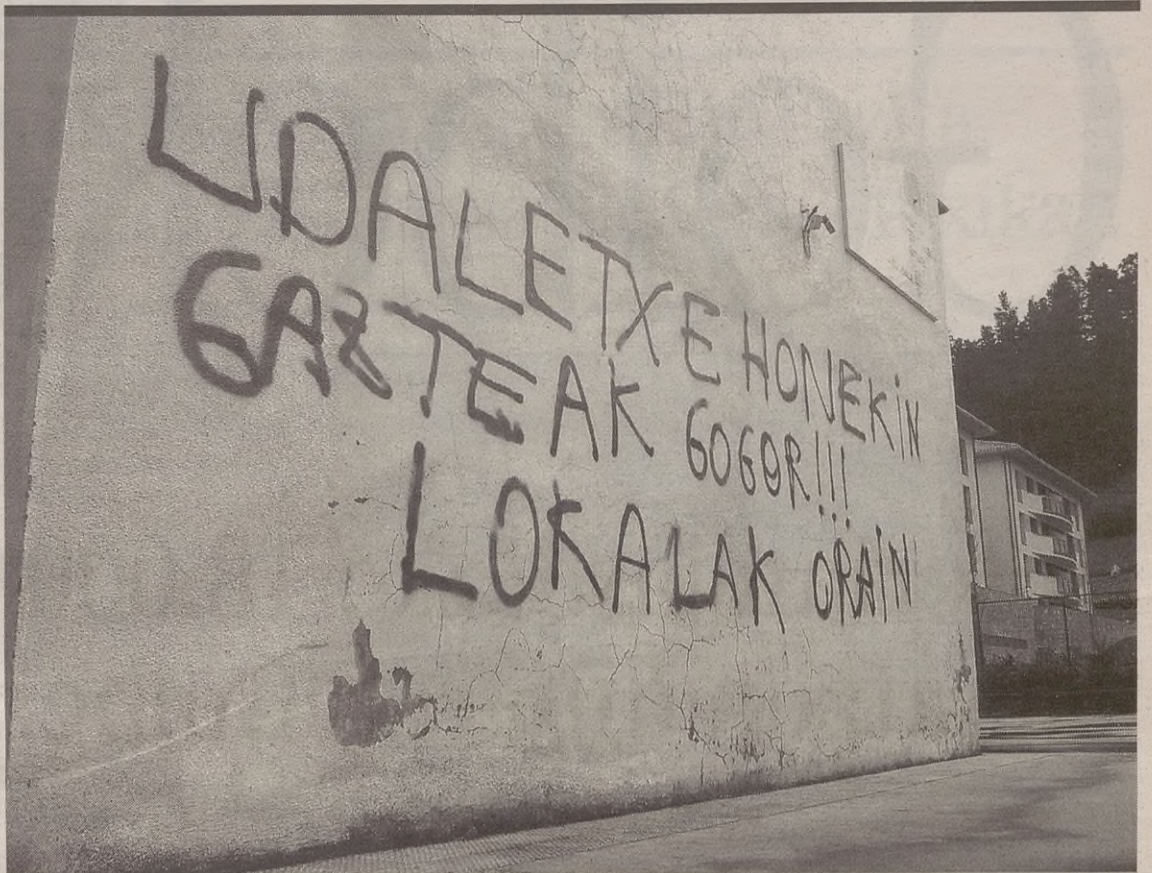 UDALETXE HONEKIN
GAZTEAK GOGOR!!!
LOKALAK ORAIN